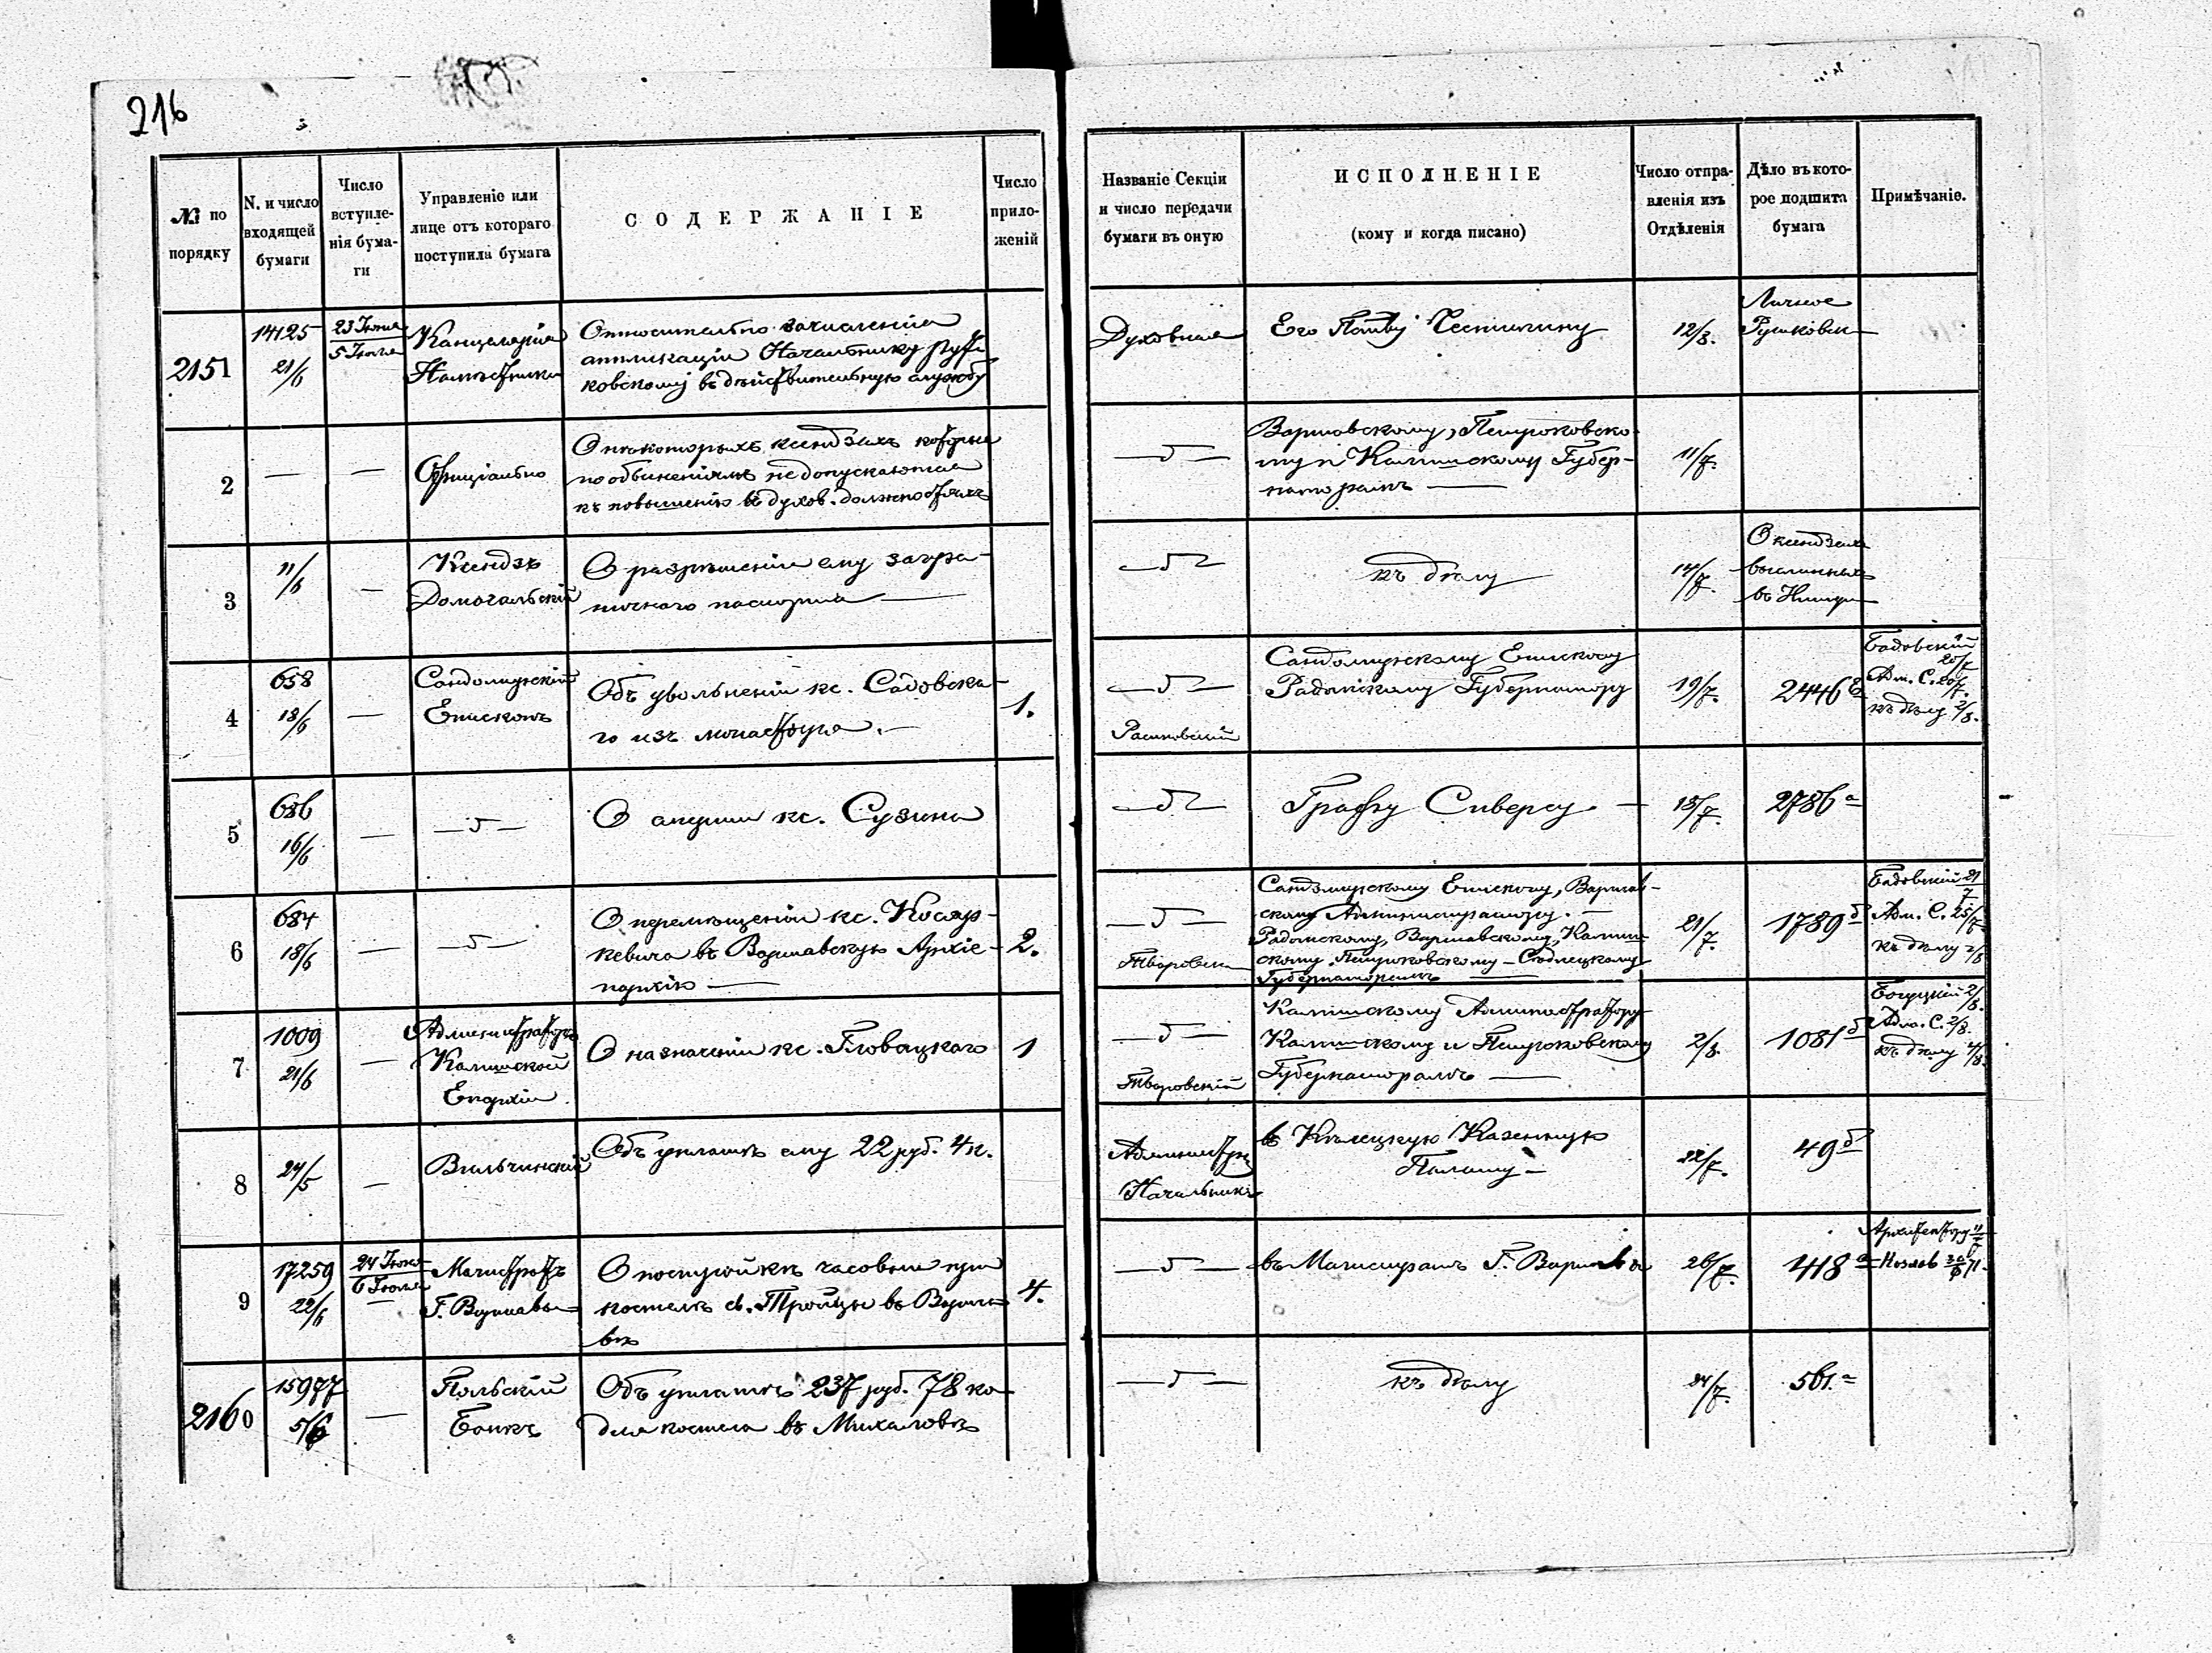 216
№ по порядку
N. и число входящей бумаги
Число вступле-
нія бума-
ги
Управленіе или
лице отъ котораго
поступила бумага
СОДЕРЖАНІЕ
Число
прило-
женій
Названіе Секціи
и число передачи
бумаги въ оную
ИСПОЛНЕНІЕ
(кому и когда писано)
Число отпра-
вленія изъ
Отдѣленія
Дѣло въ кото-
рое подшита
бумага
Примѣчаніе.
2151
14125
21/6
23 Іюня
5 Іюля
Канцелярія
Намѣстника
Относительно зачисленія
аппликаціи Начальнику
ковскому въ дѣйствительную службу
Духовная
Его
12/8.
Личное
2
—
—
Офиціально
О нѣкоторыхъ ксендзахъ которые
не допускаются
къ повышенію въ духов. должностяхъ
Варшавскому, Петроковско-
му и Калишскому Губер-
наторамъ —
11/7.
3
11/6
—
Ксендзъ
Домогальскій
О разрѣшеніи ему загра-
ничнаго паспорта —
къ дѣлу
14/7.
О ксендзахъ
высланныхъ
4
658
18/6
—
Сандомирскій
Епископъ
Объ увольненіи кс. Садовска-
го изъ монастыря. —
1.
Сандомирскому Епископу
Радомскому Губернатору
19/7.
2446
Адм. С. 20/7.
къ дѣлу 2/8.
5
686
16/6
—
О кс. Сузина
Графу Сиверсу —
15/7.
2786 а
6
684
18/6
—
О перемѣщеніи кс. Косяр-
кевича въ Варшавскую Архіе-
пархію —
2.
Сандомирскому Епископу, Варшав-
скому Администратору. —
Радомскому, Варшавскому, Калиш-
скому Петроковскому — Сѣдлецкому
Губернаторамъ —
21/7.
1789 б
21/7
Адм. С. 25/7
къ дѣлу 2/8
7
1009
21/6
—
Администраторъ
Калишской
Епархіи
О назначеніи кс. Гловацкаго
1
Тваровскій
Калишскому Администратору
Калишскому и Петроковскому
Губернаторамъ —
2/8.
1081 б
Богуцкій 2/8.
Адм. С. 2/8.
къ дѣлу 4/8.
8
24/5
—
Вильчинскій
Объ уплатѣ ему 22 руб. 4 к.
Начальникъ
въ Кѣлецкую Казенную
Палату —
22/7.
49 б
9
17259
22/6
24 Іюня
6 Іюля
Магистратъ
Г. Варшавы
О постройкѣ часовни при
костелѣ св. Тройцы въ Варша-
вѣ
4.
въ Магистратъ Г. Варшавы
26/7.
418 а
2160
15977
5/6
—
Польскій
Банкъ
Объ уплатѣ 237 руб. 78 ко
для костела въ Михаловѣ
къ дѣлу
24/7.
561. а